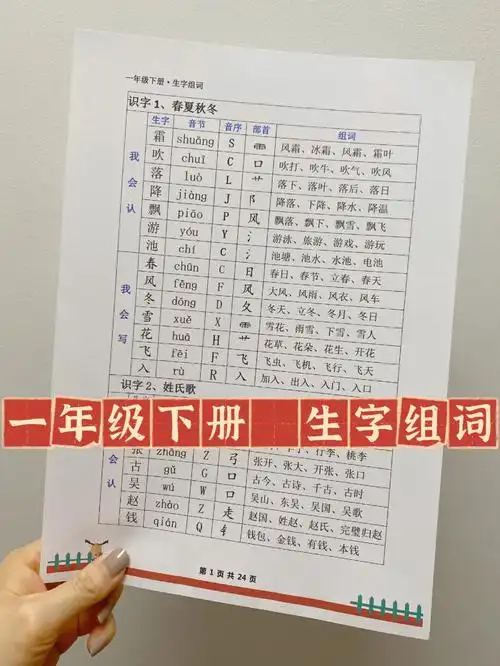 一年级下册·生字组词
识字1、春夏秋冬
生字 音节 音序 部首 组词
我会认
霜 shuāng S ⻗ 风霜、冰霜、风霜、霜叶
吹 chuī C 口 吹打、吹牛、吹气、吹风
落 luò L 艹 落下、落叶、落后、落日
降 jiàng J 阝 降落、下降、降水、降温
飘 piāo P 风 飘落、飘下、飘雪、飘飞
游 yóu Y 氵 游泳、旅游、游戏、游玩
池 chí C 氵 池塘、池水、水池、电池
我会写
春 chūn C 日 春日、春节、立春、春天
风 fēng F 风 大风、风雨、风衣、风车
冬 dōng D 夂 冬天、立冬、冬月、冬日
雪 xuě X ⻗ 雪花、雨雪、下雪、雪人
花 huā H 艹 花草、花朵、花生、开花
飞 fēi F 飞 飞虫、飞机、飞行、飞天
入 rù R 入 加入、出入、入门、入口
识字2、姓氏歌
一年级下册 生字组词
会认
行李、桃李
张 zhāng Z 弓 张开、张大、开张、张口
古 gǔ G 口 古今、古诗、千古、古时
吴 wú W 口 吴山、东吴、吴国、吴歌
赵 zhào Z 走 赵国、姓赵、赵氏、完璧归赵
钱 qián Q 钅 钱包、金钱、有钱、本钱
第 1 页 共 24 页